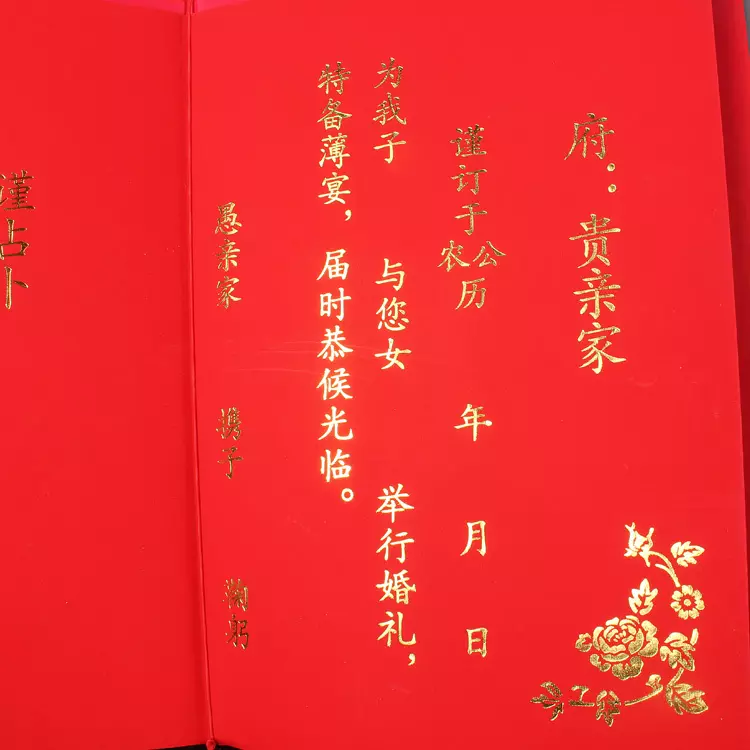 府：贵亲家
谨订于公历农历 年 月 日
为我子 与您女 举行婚礼，
特备薄宴，届时恭候光临。
愚亲家 携子 鞠躬
谨占卜